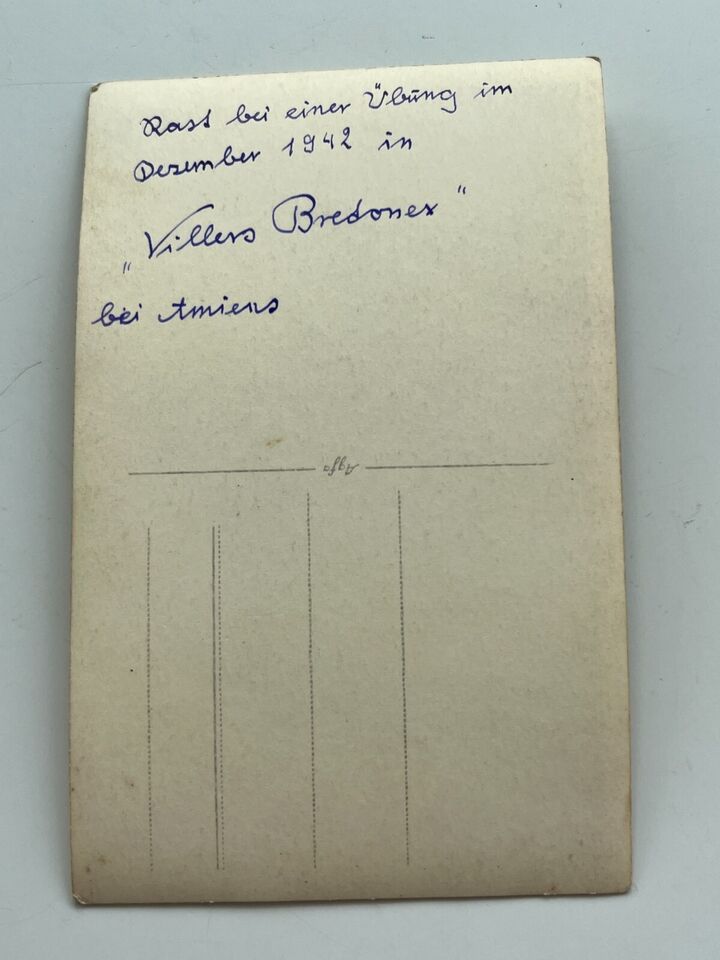 Rast bei einer Übung im
Dezember 1942 in
„Villers Bredonex"
bei Amiens
Agfa